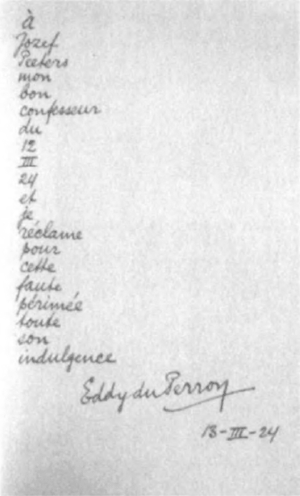 à
Jozef
Peeters
mon
bon
confesseur
du
12
III
24
et
je
réclame
pour
cette
faute
périmée
toute
son
indulgence
Eddy du Perron
13-III-24